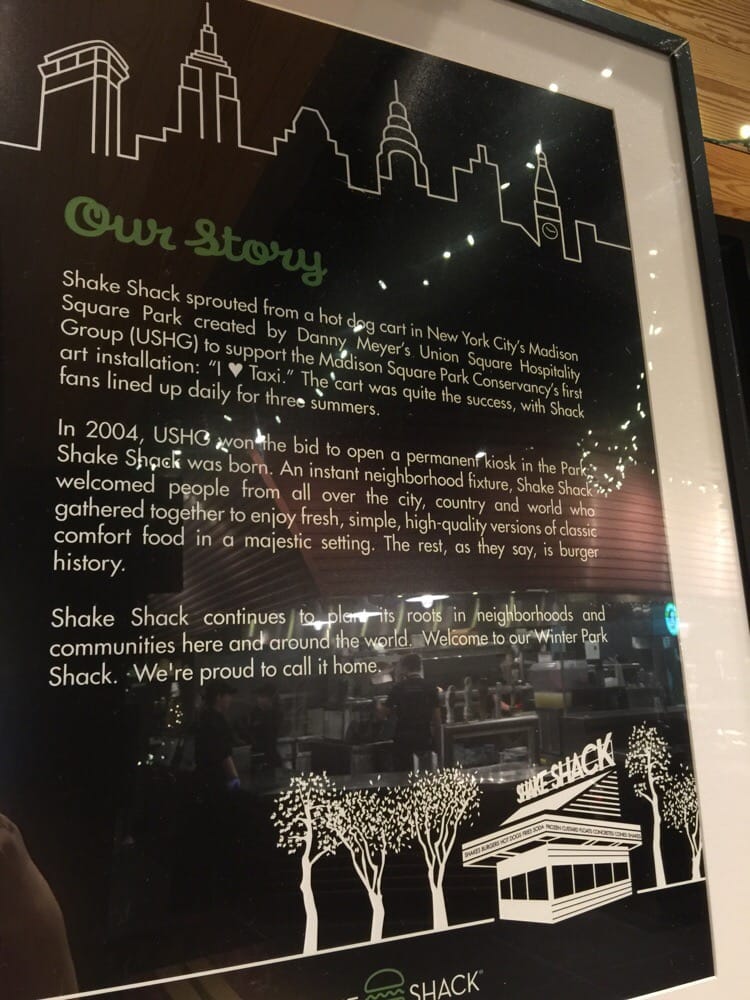 Our Story
Shake Shack sprouted from a hot dog cart in New York City's Madison
Square Park created by Danny Meyer's Union Square Hospitality
Group (USHG) to support the Madison Square Park Conservancy's first
art installation: "I ♥ Taxi." The cart was quite the success, with Shack
fans lined up daily for three summers.
In 2004, USHG won the bid to open a permanent kiosk in the Park.
Shake Shack was born. An instant neighborhood fixture, Shake Shack
welcomed people from all over the city, country and world who
gathered together to enjoy fresh, simple, high-quality versions of classic
comfort food in a majestic setting. The rest, as they say, is burger
history.
Shake Shack continues to plant its roots in neighborhoods and
communities here and around the world. Welcome to our Winter Park
Shack. We're proud to call it home.
SHAKE SHACK
SHAKES BURGERS HOT DOGS FRIES SODA FROZEN CUSTARD FLOATS CONCRETES CONES SHAKES
SHACK